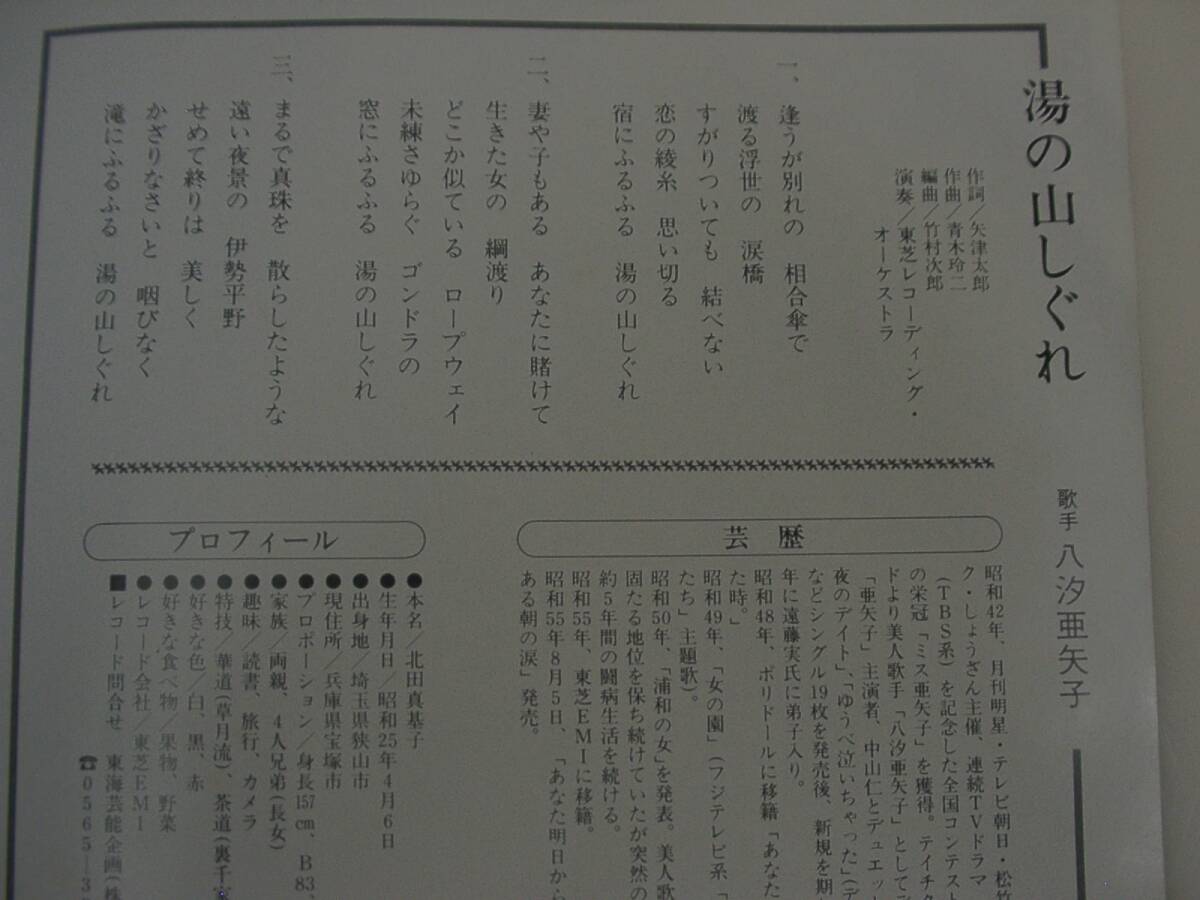 湯の山しぐれ
歌手 八汐亜矢子
作詞/矢津太郎
作曲/青木玲二
編曲/竹村次郎
演奏/東芝レコーディング・
オーケストラ
一、逢うが別れの 相合傘で
渡る浮世の 涙橋
すがりついても 結べない
恋の綾糸 思い切る
宿にふるふる 湯の山しぐれ
二、妻や子もある あなたに賭けて
生きた女の 綱渡り
どこか似ている ロープウェイ
未練さゆらぐ ゴンドラの
窓にふるふる 湯の山しぐれ
三、まるで真珠を 散らしたような
遠い夜景の 伊勢平野
せめて終りは 美しく
かざりなさいと 咽びなく
滝にふるふる 湯の山しぐれ
芸歴
昭和42年、月刊明星・テレビ朝日・松竹
ク・しょうざん主催、連続TVドラマ
(TBS系)を記念した全国コンテスト
の栄冠「ミス亜矢子」を獲得。テイチク
ドより美人歌手「八汐亜矢子」としてデ
「亜矢子」主演者、中山仁とデュエット
夜のデイト」、「ゆうべ泣いちゃった」(デ
などシングル19枚を発売後、新規を期
年に遠藤実氏に弟子入り。
昭和48年、ポリドールに移籍「あなた
た時。」
昭和49年、「女の園」(フジテレビ系「
たち」主題歌)。
昭和50年、「浦和の女」を発表。美人歌
固たる地位を保ち続けていたが突然の
約5年間の闘病生活を続ける。
昭和55年、東芝EMIに移籍。
昭和55年8月5日、「あなた明日から
ある朝の涙」発売。
プロフィール
●本名/北田真基子
●生年月日/昭和25年4月6日
●出身地/埼玉県狭山市
●現住所/兵庫県宝塚市
●プロポーション/身長157cm、B83、
●家族/両親、4人兄弟(長女)
●趣味/読書、旅行、カメラ
●特技/華道(草月流)、茶道(裏千家
●好きな色/白、黒、赤
●好きな食べ物/果物、野菜
●レコード会社/東芝EMI
■レコード問合せ 東海芸能企画(株
☎0565-3